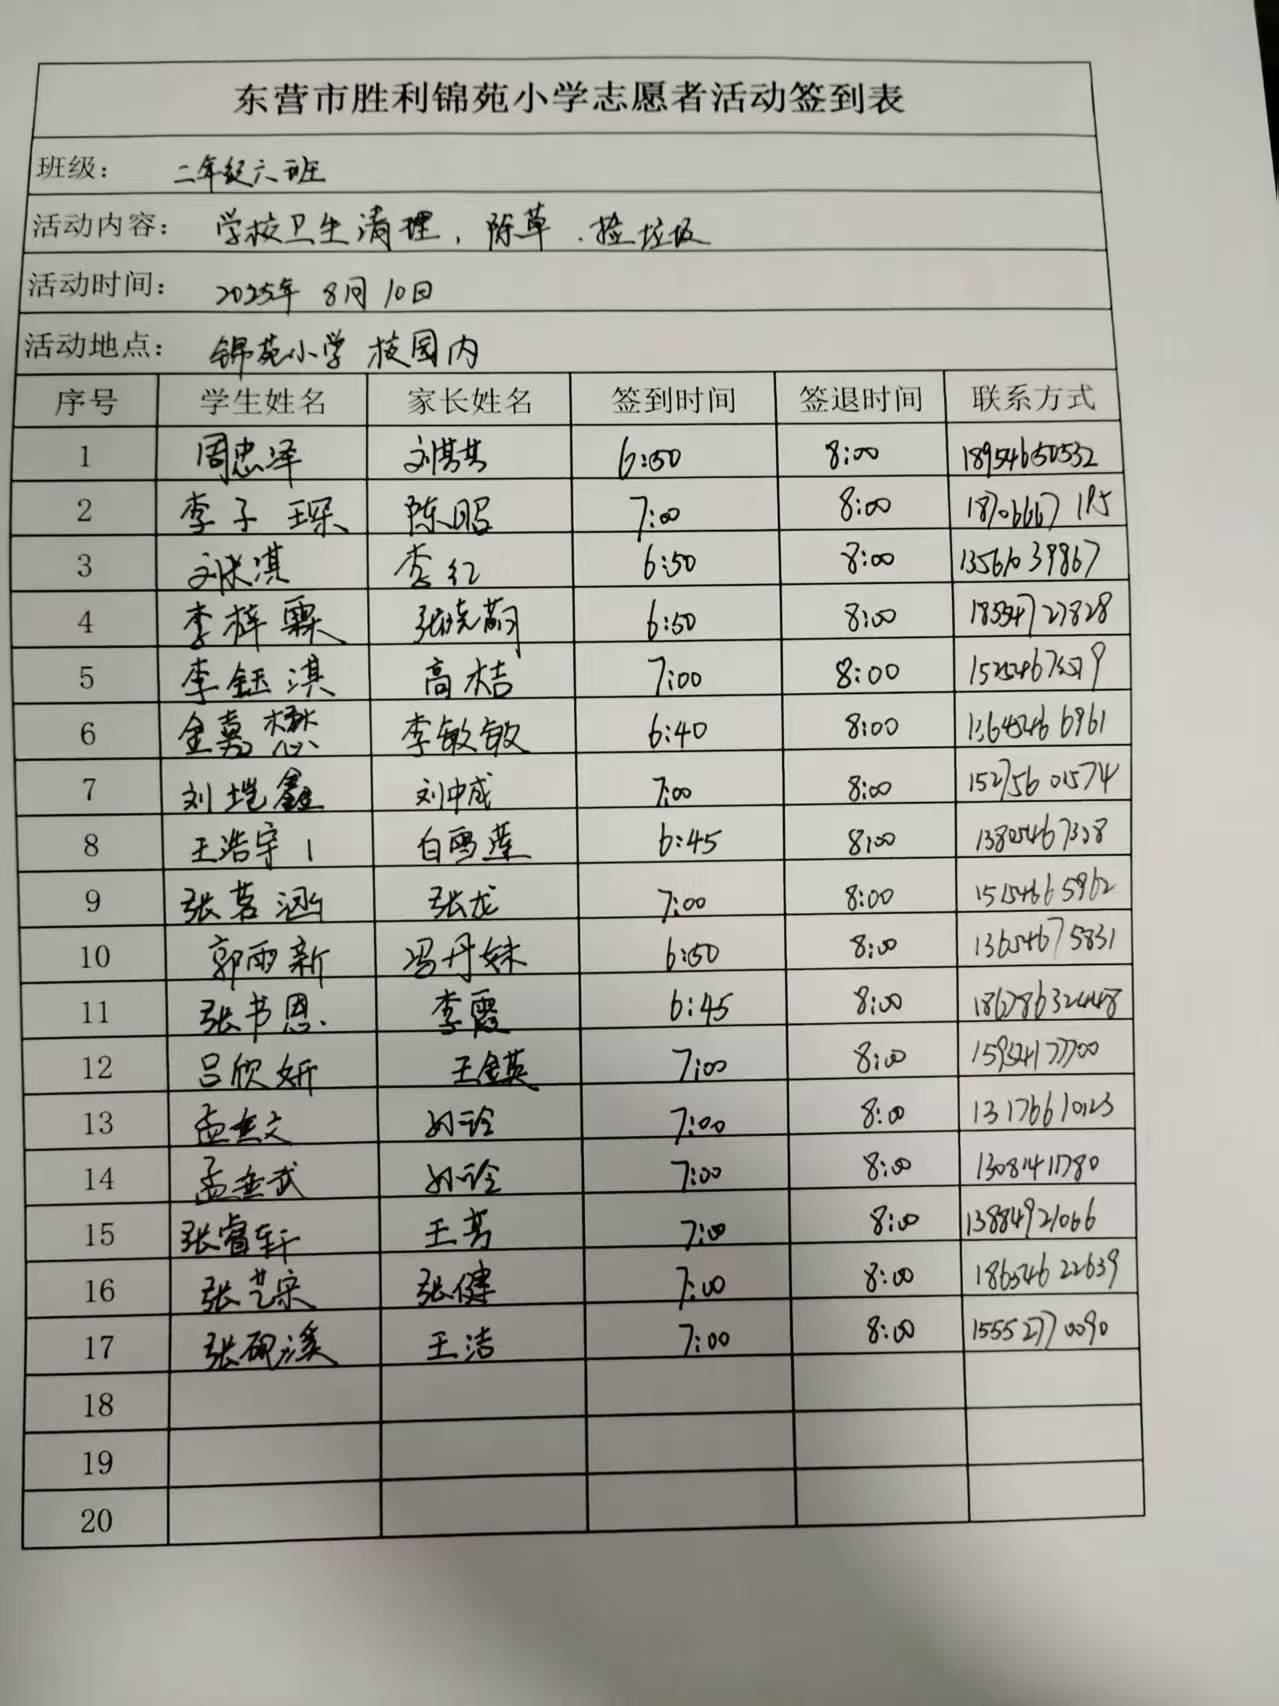 东营市胜利锦苑小学志愿者活动签到表
班级： 二年级六班
活动内容： 学校卫生清理，除草、捡垃圾
活动时间： 2025年 8月10日
活动地点： 锦苑小学 校园内
序号 学生姓名 家长姓名 签到时间 签退时间 联系方式
1 周忠泽 刘芸芸 6:50 8:00 18954650532
2 李子琛 陈昭 7:00 8:00
3 刘洣淇 李红 6:50 8:00 13561039867
4 李梓霖 6:50 8:00 18554727828
5 李钰淇 高桔 7:00 8:00
6 金嘉懋 李敏敏 6:40 8:00 13645466961
7 刘垲鑫 刘中成 7:00 8:00 15275601574
8 王浩宇1 白雪莲 6:45 8:00 13805467328
9 张茗涵 张龙 7:00 8:00 15154665962
10 郭雨新 冯丹妹 6:50 8:00 13654675831
11 张书恩 李霞 6:45 8:00 18678632448
12 吕欣妍 王金英 7:00 8:00 15954177700
13 孟垂文 孙玲 7:00 8:00 13176610123
14 孟垂武 孙玲 7:00 8:00 13081411780
15 张睿轩 王芳 7:00 8:00 13884921066
16 张艺宗 张健 7:00 8:00 18654622639
17 张砚溪 王洁 7:00 8:00 15552770090
18
19
20